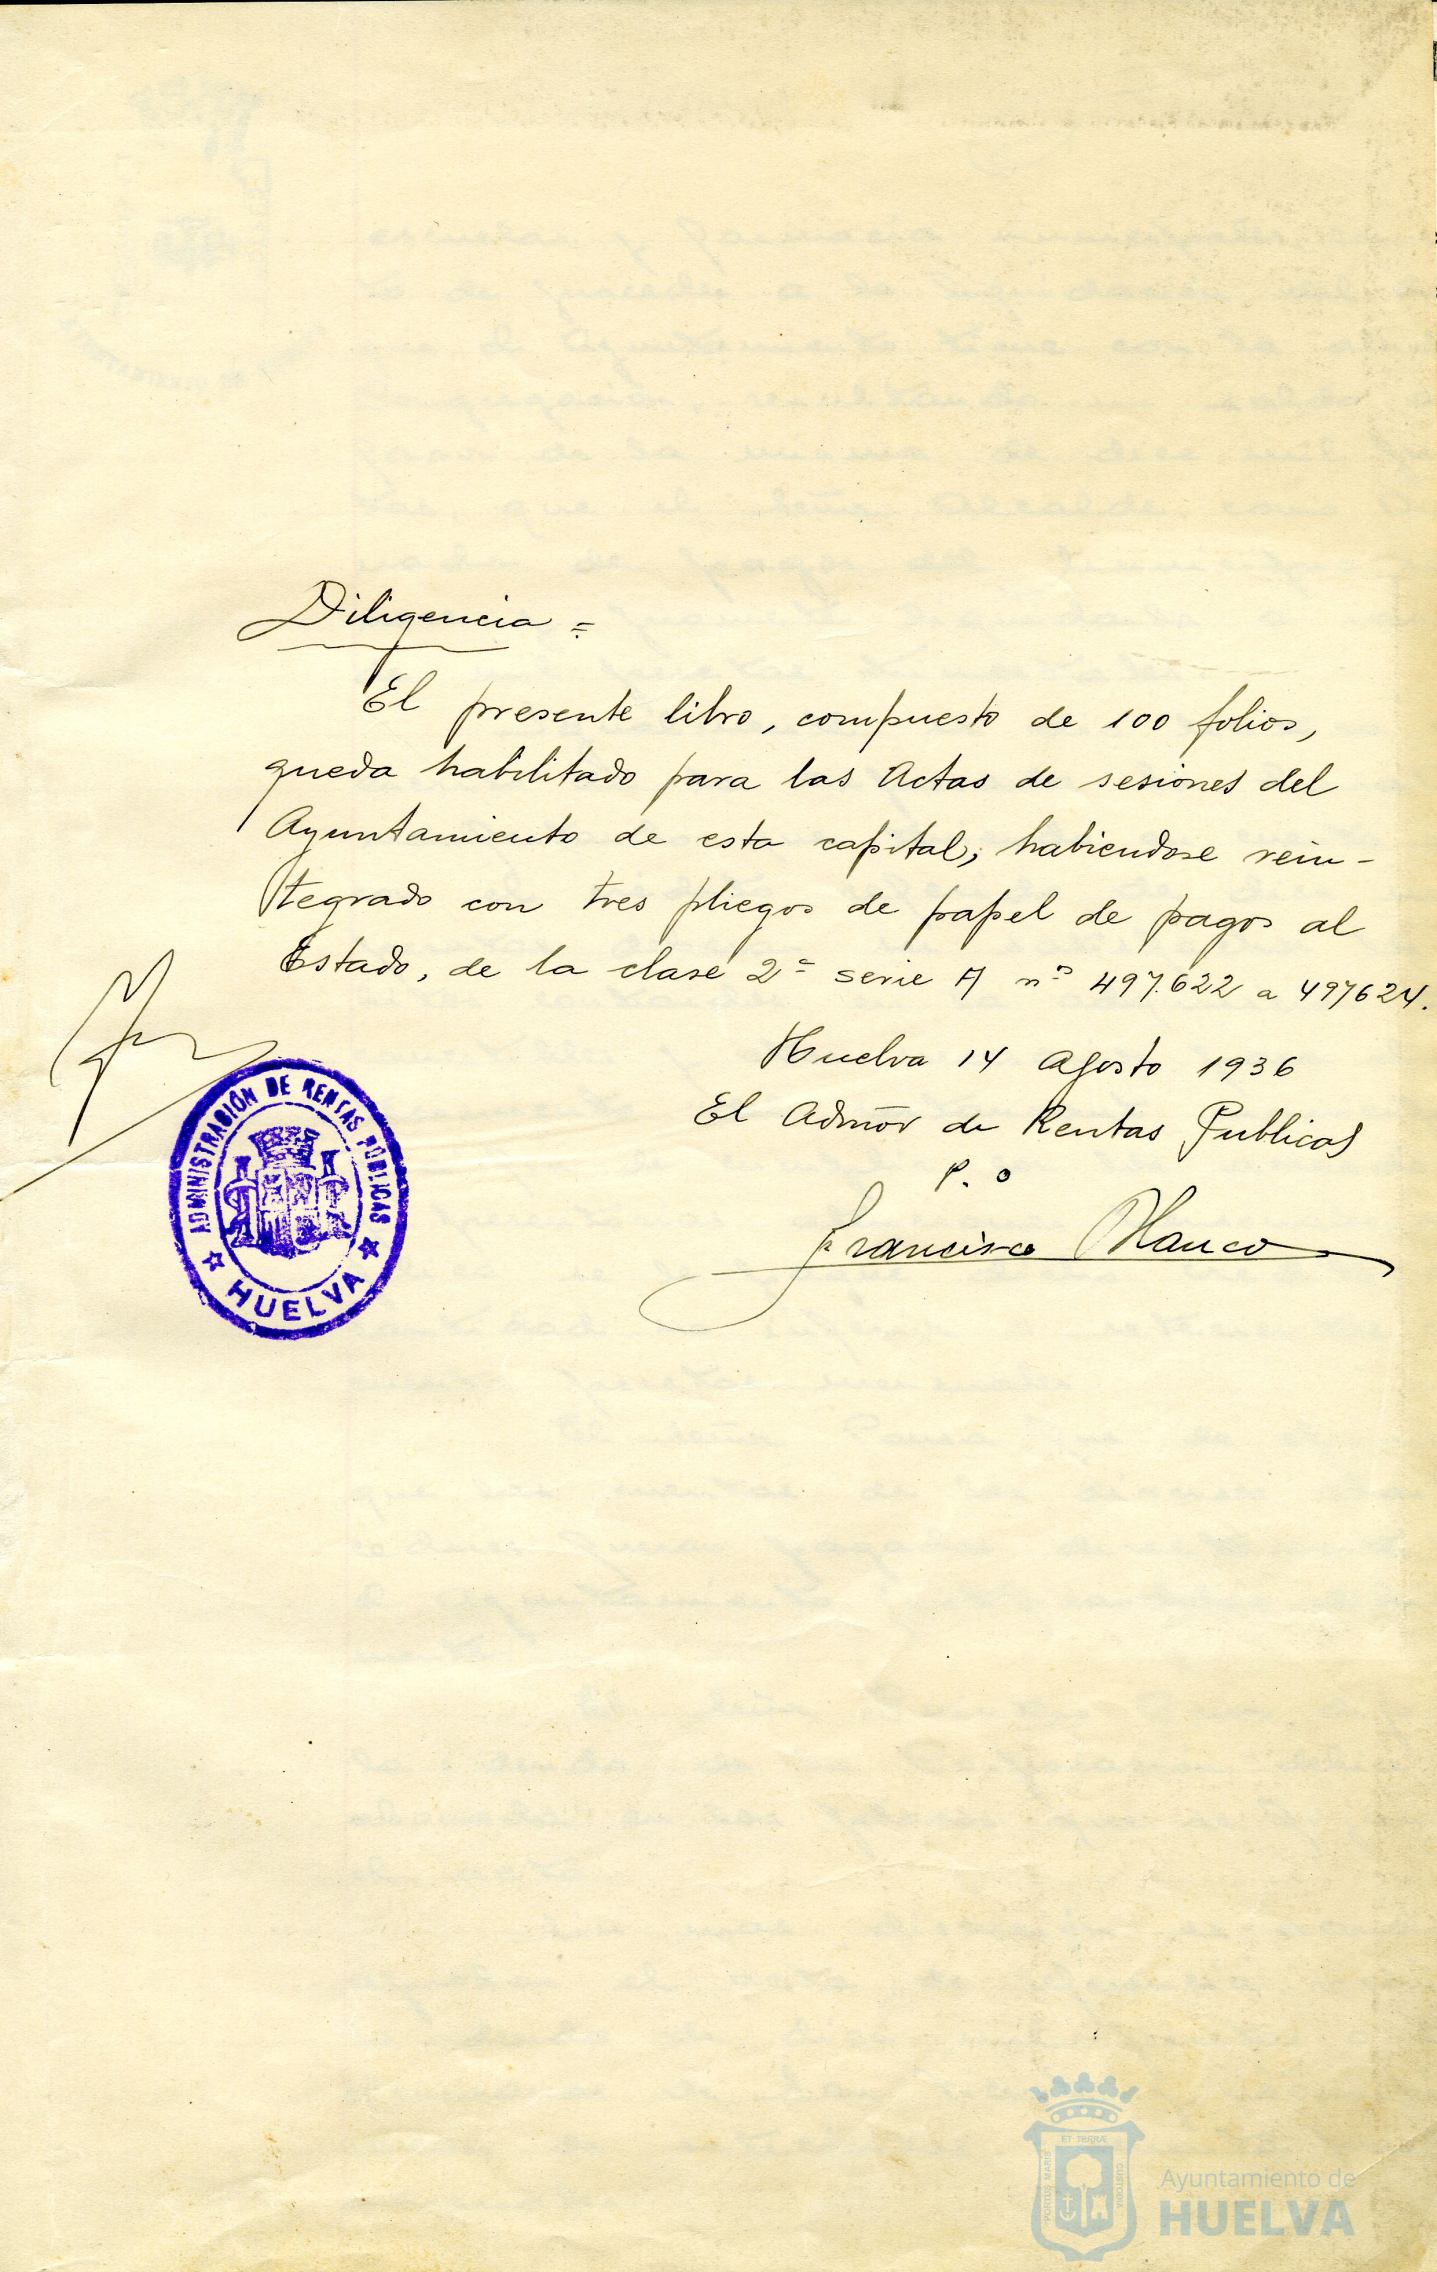 Diligencia =
El presente libro, compuesto de 100 folios,
queda habilitado para las Actas de sesiones del
Ayuntamiento de esta capital, habiendose rein-
tegrado con tres pliegos de papel de pagos al
Estado, de la clase 2ª serie A nºs 497.622 a 497624.
Huelva 14 Agosto 1936
El Admor de Rentas Publicas
P. O
Francisco
ADMINISTRACIÓN DE RENTAS PÚBLICAS
HUELVA
PORTUS MARIS
ET TERRÆ
CUSTODIA
Ayuntamiento de
HUELVA